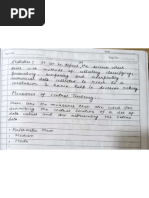 Statistics : It is defined the science which
deals with methods of collecting classifying,
presenting, comparing and interpreting
numerical data collected to reach to a
conclusion & hence help in decision making
Measures of central Tendency
These are the measures that are used for
describing the central location of a set of
data which are also representing the entire
data
Arithmetic Mean
Median
Mode